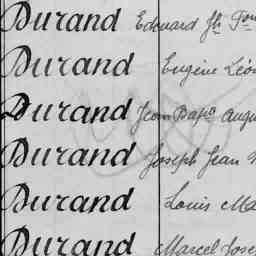 Durand Edouard Jh
Durand Eugène Léon
Durand Jean Bapte Augu
Durand Joseph Jean
Durand Louis Ma
Durand Marcel Jose